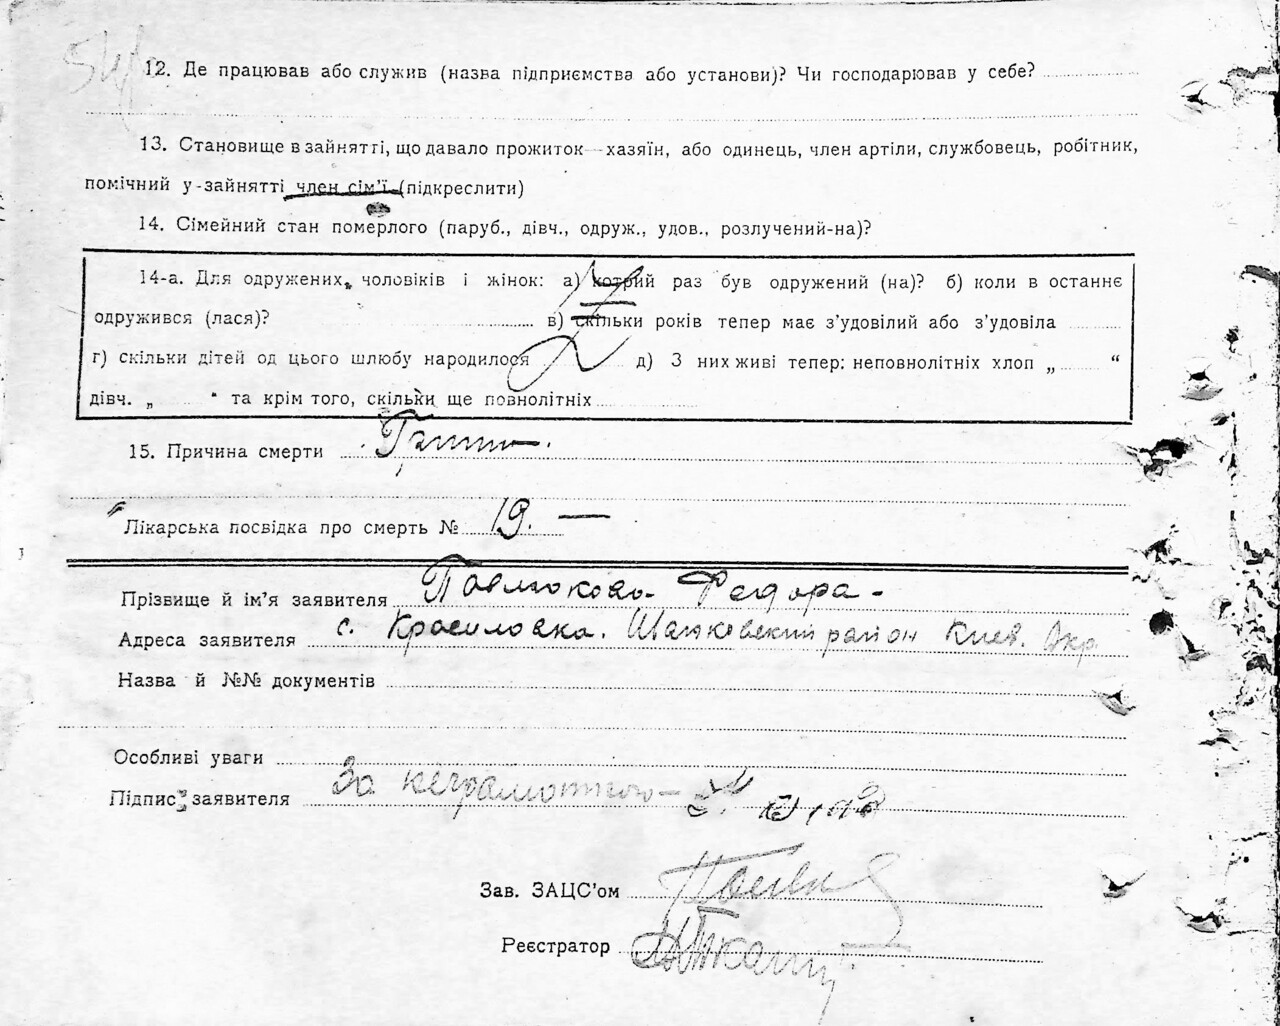 12. Де працював або служив (назва підприємства або установи)? Чи господарював у себе?
13. Становище в зайнятті, що давало прожиток—хазяїн, або одинець, член артіли, службовець, робітник,
помічний у-зайнятті член сім'ї (підкреслити)
14. Сімейний стан померлого (паруб., дівч., одруж., удов., розлучений-на)?
14-а. Для одружених, чоловіків і жінок: а) котрий раз був одружений (на)? б) коли в останнє
одружився (лася)? в) скільки років тепер має з'удовілий або з'удовіла
г) скільки дітей од цього шлюбу народилося 2 д) З них живі тепер: неповнолітніх хлоп „ “
дівч. „ “ та крім того, скільки ще повнолітніх
15. Причина смерти Грипп.
Лікарська посвідка про смерть № 19. —
Прізвище й ім'я заявителя Федора -
Адреса заявителя с. Красиловка. район Киев. Окр.
Назва й №№ документів
Особливі уваги
Підпис заявителя За неграмотного-
Зав. ЗАЦС'ом
Реєстратор